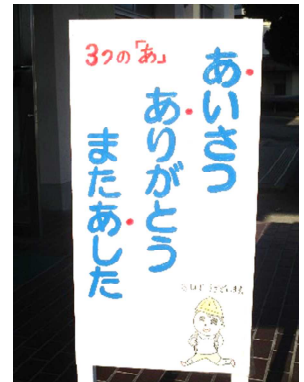 3つの「あ」
あいさつ
ありがとう
またあした